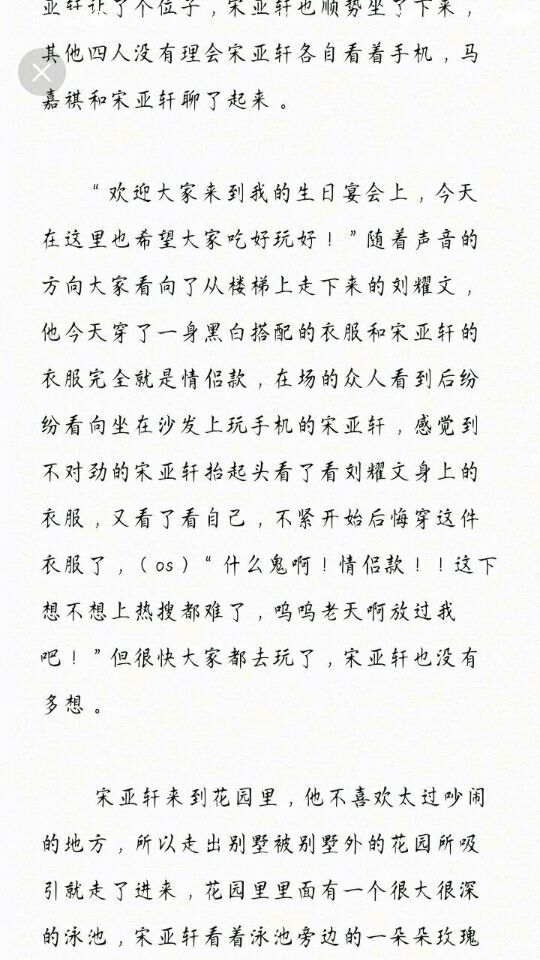 亚轩让了个位子，宋亚轩也顺势坐了下来，
其他四人没有理会宋亚轩各自看着手机，马
嘉祺和宋亚轩聊了起来。
“欢迎大家来到我的生日宴会上，今天
在这里也希望大家吃好玩好！”随着声音的
方向大家看向了从楼梯上走下来的刘耀文，
他今天穿了一身黑白搭配的衣服和宋亚轩的
衣服完全就是情侣款，在场的众人看到后纷
纷看向坐在沙发上玩手机的宋亚轩，感觉到
不对劲的宋亚轩抬起头看了看刘耀文身上的
衣服，又看了看自己，不紧开始后悔穿这件
衣服了，（os）“什么鬼啊！情侣款！！这下
想不想上热搜都难了，呜呜老天啊放过我
吧！”但很快大家都去玩了，宋亚轩也没有
多想。
宋亚轩来到花园里，他不喜欢太过吵闹
的地方，所以走出别墅被别墅外的花园所吸
引就走了进来，花园里里面有一个很大很深
的泳池，宋亚轩看着泳池旁边的一朵朵玫瑰